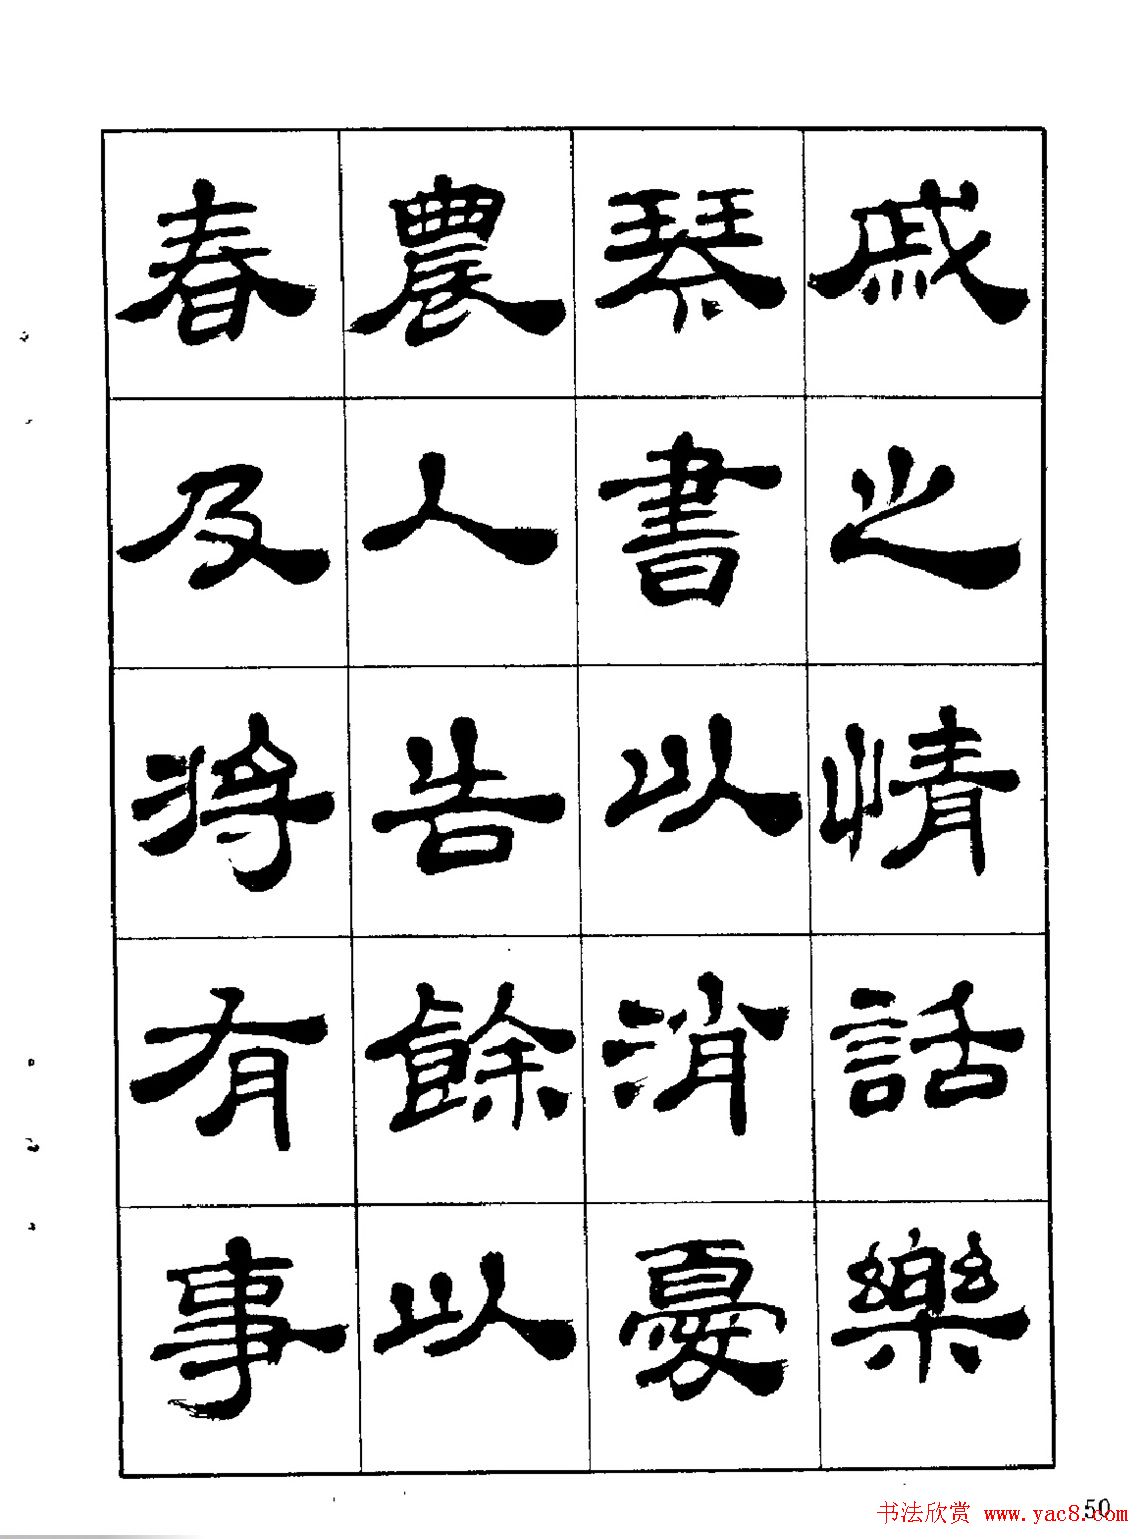 戚之情話樂
琴書以消憂
農人告餘以
春及將有事
50
书法欣赏 www.yac8.com